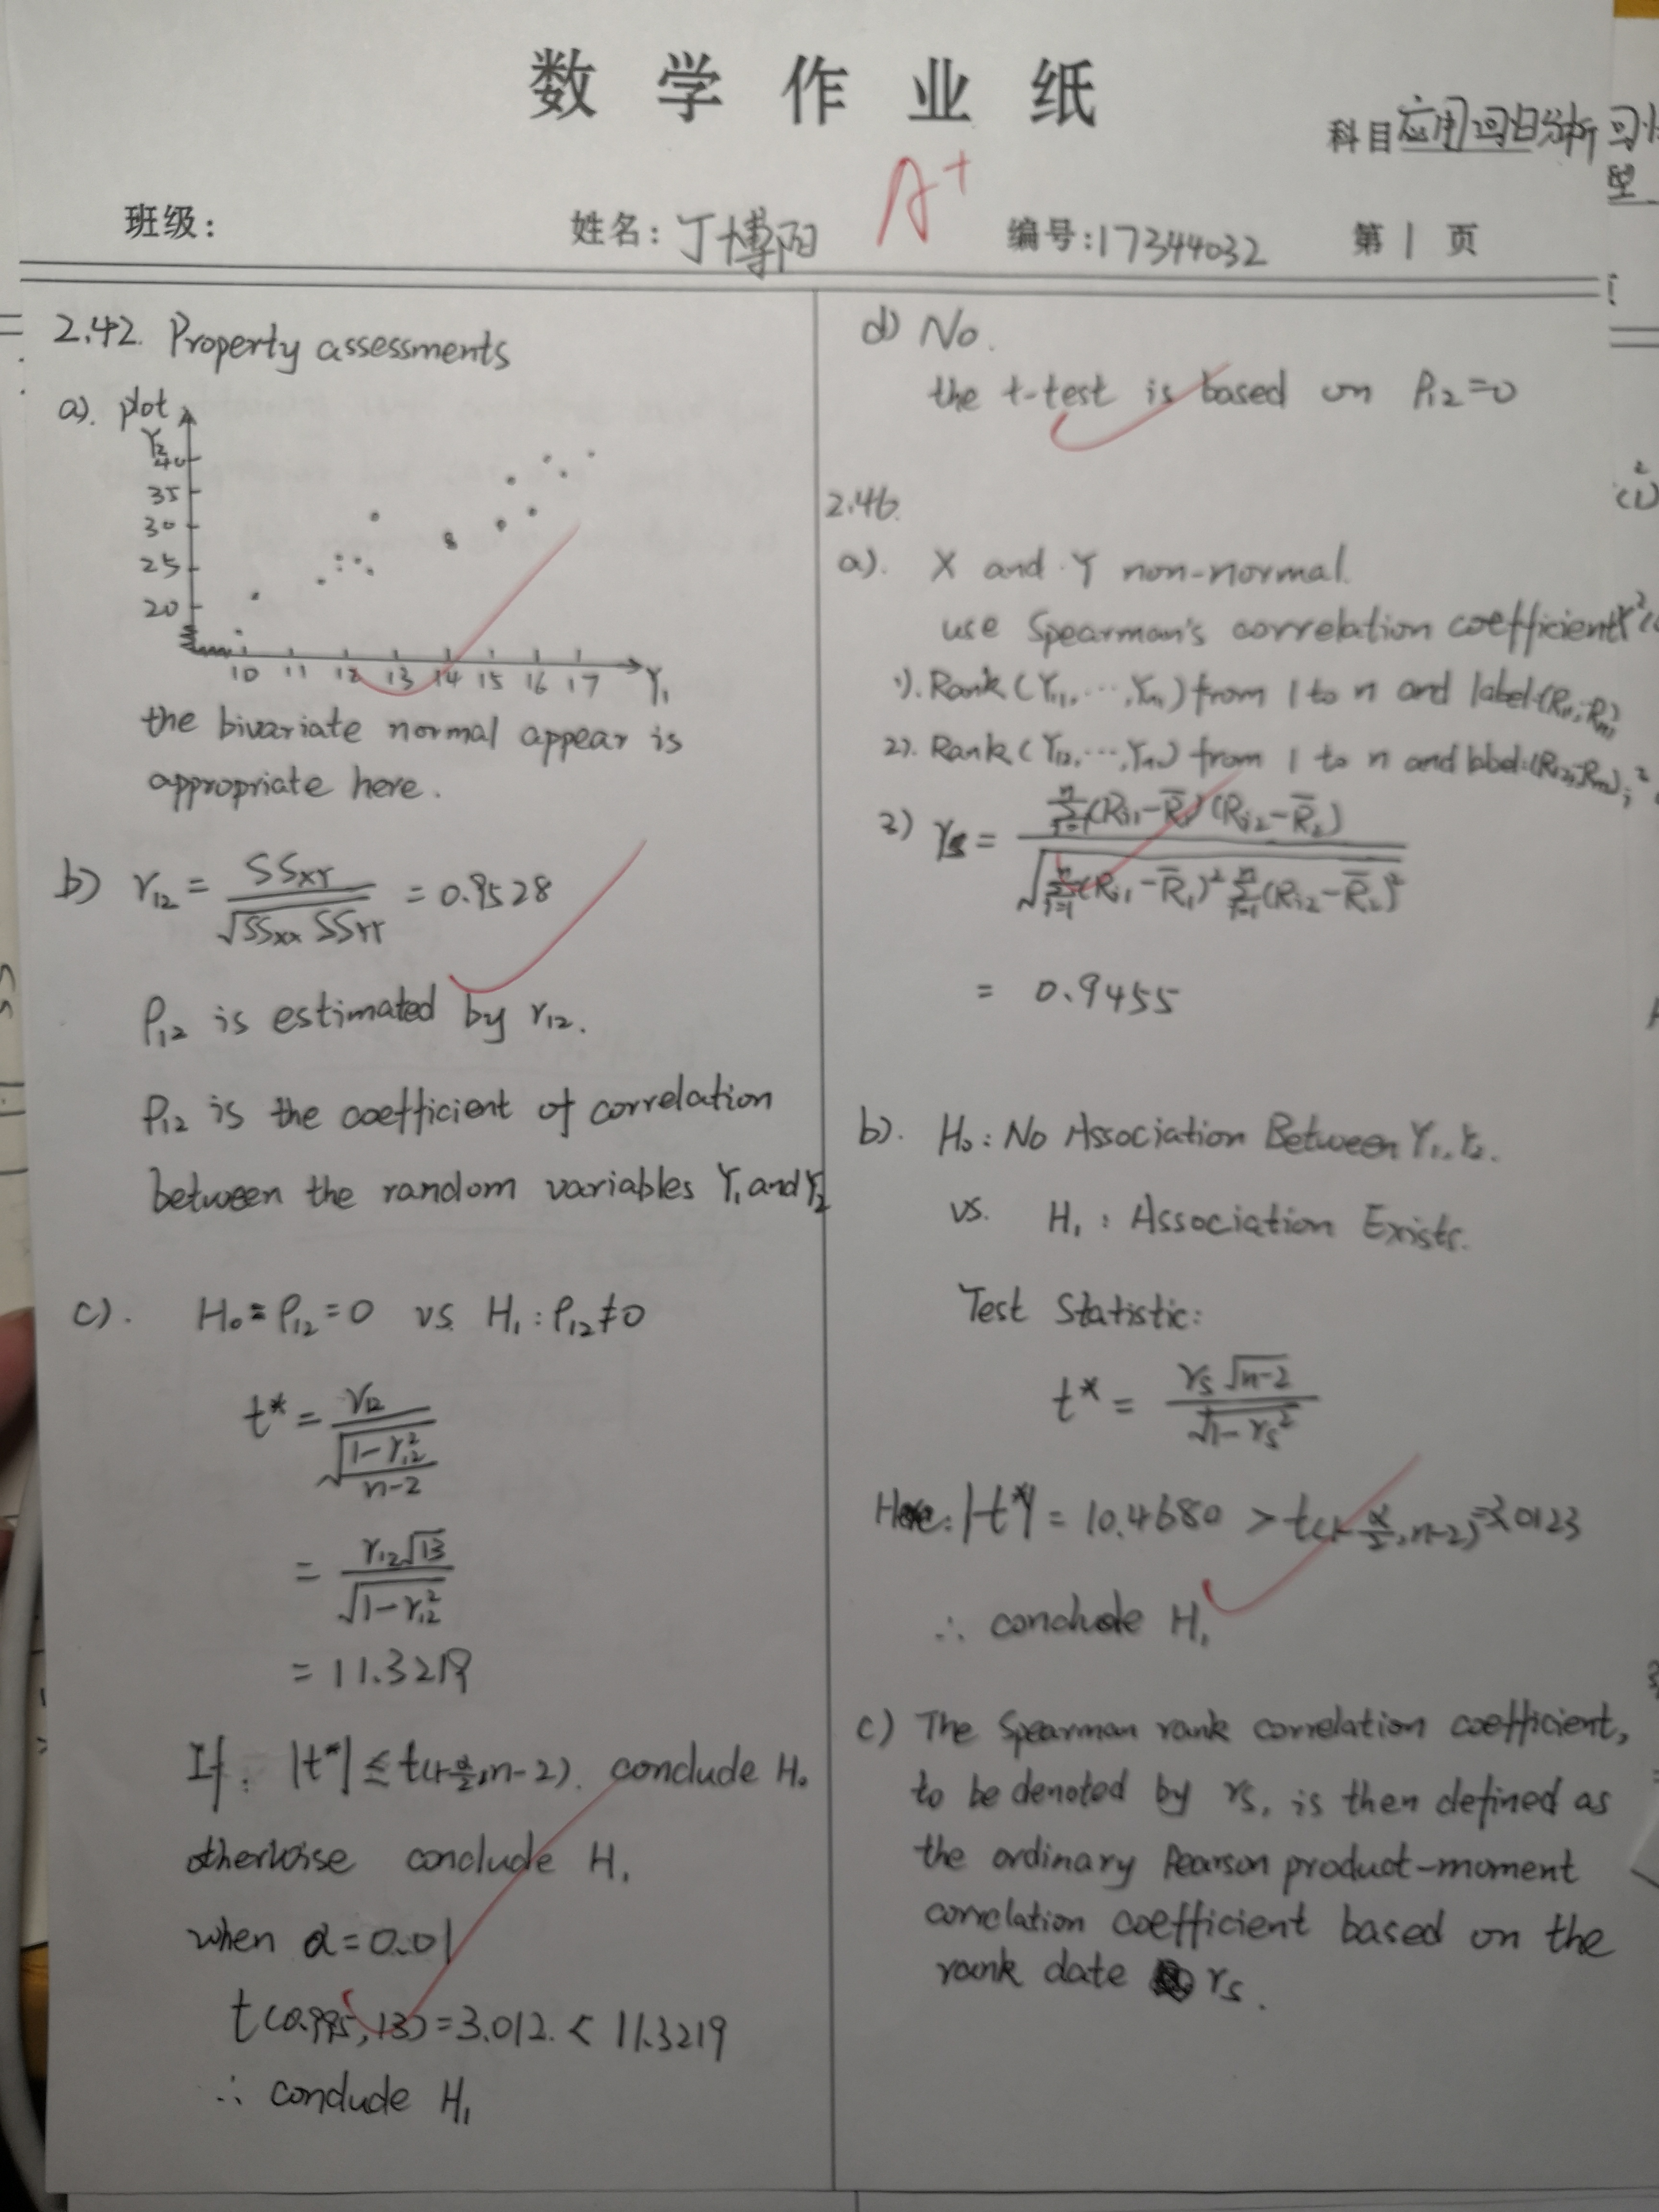 数 学 作 业 纸
科目 应用回归分析
A+
班级:
姓名: 丁博阳
编号: 17344032
第 1 页
2.42. Property assessments
a). plot
Y₂
40
35
30
25
20
10 11 12 13 14 15 16 17 Y₁
the bivariate normal appear is
appropriate here.
b) r₁₂ = SSxY / √(SSxx SSYY) = 0.9528
ρ₁₂ is estimated by r₁₂.
ρ₁₂ is the coefficient of correlation
between the random variables Y₁ and Y₂
c). H₀: ρ₁₂ = 0 vs. H₁: ρ₁₂ ≠ 0
t* = r₁₂ / √((1-r₁₂²)/(n-2))
= r₁₂√13 / √(1-r₁₂²)
= 11.3219
If: |t*| ≤ t(1-α/2, n-2). conclude H₀
otherwise conclude H₁
when α = 0.01
t(0.995, 13) = 3.012. < 11.3219
∴ conclude H₁
d) No.
the t-test is based on ρ₁₂ = 0
2.46.
a). X and Y non-normal.
use Spearman's correlation coefficient
1). Rank (Y₁₁, ⋯, Yₙ₁) from 1 to n and label:(R₁₁, Rₙ₁)
2). Rank (Y₁₂, ⋯, Yₙ₂) from 1 to n and label:(R₁₂, Rₙ₂)
3) rs = Σᵢ₌₁ⁿ(Rᵢ₁-R̄₁)(Rᵢ₂-R̄₂) / √(Σᵢ₌₁ⁿ(Rᵢ₁-R̄₁)² Σᵢ₌₁ⁿ(Rᵢ₂-R̄₂)²)
= 0.9455
b). H₀: No Association Between Y₁, Y₂.
vs. H₁: Association Exists.
Test Statistic:
t* = rs√(n-2) / √(1-rs²)
Here: |t*| = 10.4680 > t(1-α/2, n-2) = 3.0123
∴ conclude H₁
c) The Spearman rank correlation coefficient,
to be denoted by rs, is then defined as
the ordinary Pearson product-moment
correlation coefficient based on the
rank date rs.